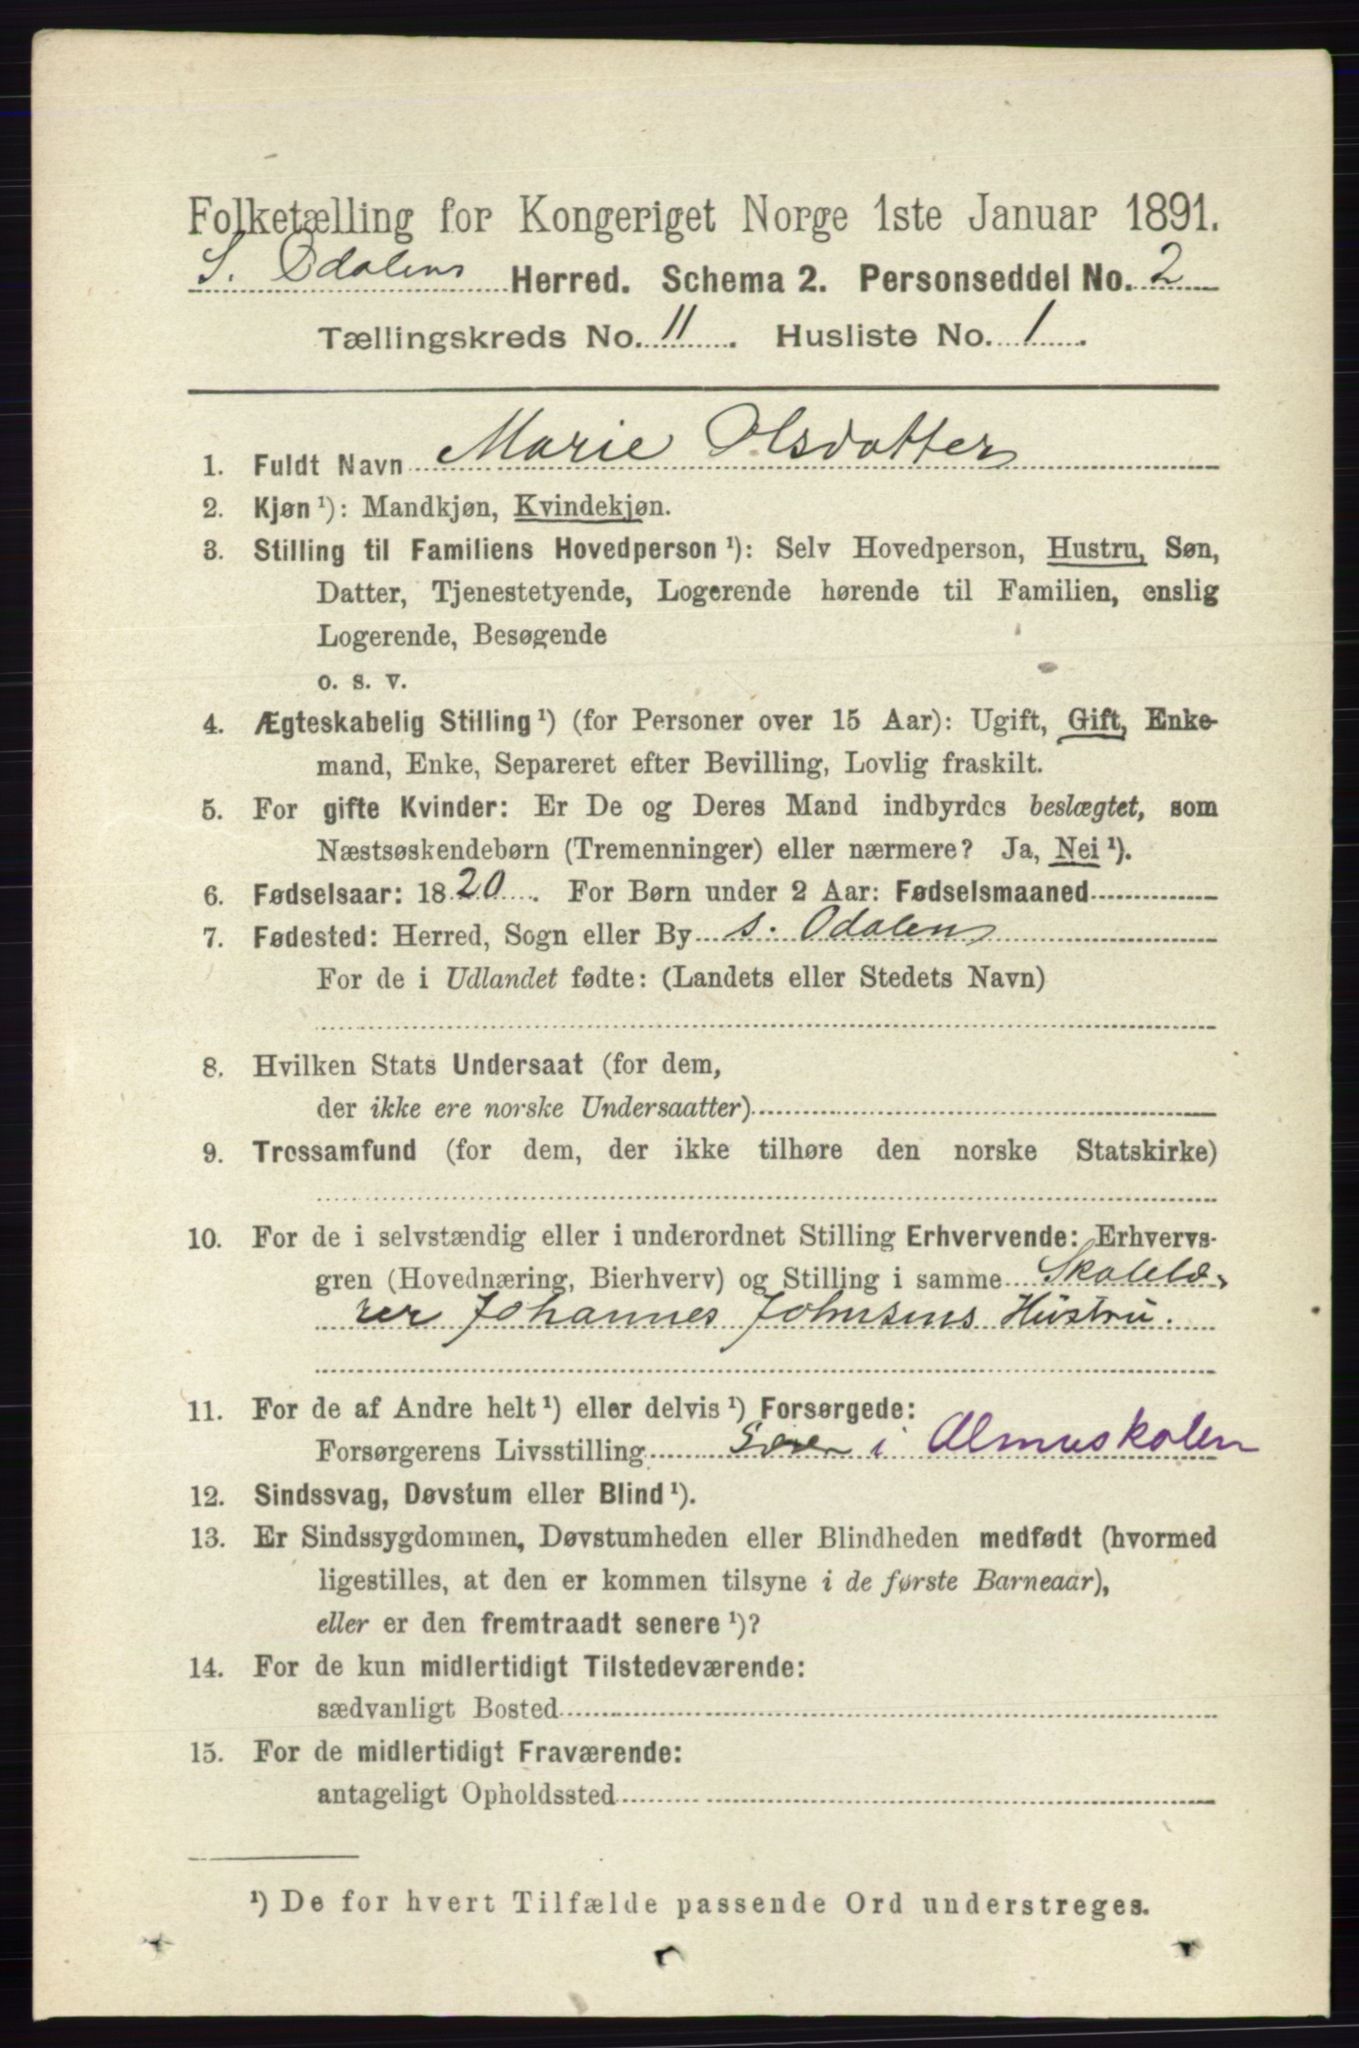 Folketælling for Kongeriget Norge 1ste Januar 1891.
S. Odalens Herred. Schema 2. Personseddel No. 2
Tællingskreds No. 11. Husliste No. 1.
1. Fuldt Navn Marie Olsdatter
2. Kjøn ¹): Mandkjøn, Kvindekjøn.
3. Stilling til Familiens Hovedperson ¹): Selv Hovedperson, Hustru, Søn,
Datter, Tjenestetyende, Logerende hørende til Familien, enslig
Logerende, Besøgende
o. s. v.
4. Ægteskabelig Stilling ¹) (for Personer over 15 Aar): Ugift, Gift, Enke-
mand, Enke, Separeret efter Bevilling, Lovlig fraskilt.
5. For gifte Kvinder: Er De og Deres Mand indbyrdes beslægtet, som
Næstsøskendebørn (Tremenninger) eller nærmere? Ja, Nei ¹).
6. Fødselsaar: 1820. For Børn under 2 Aar: Fødselsmaaned
7. Fødested: Herred, Sogn eller By s. Odalens
For de i Udlandet fødte: (Landets eller Stedets Navn)
8. Hvilken Stats Undersaat (for dem,
der ikke ere norske Undersaatter)
9. Trossamfund (for dem, der ikke tilhøre den norske Statskirke)
10. For de i selvstændig eller i underordnet Stilling Erhvervende: Erhvervs-
gren (Hovednæring, Bierhverv) og Stilling i samme Skolelæ-
rer Johannes Johnsens Hustru.
11. For de af Andre helt ¹) eller delvis ¹) Forsørgede:
Forsørgerens Livsstilling i Almuskolen
12. Sindssvag, Døvstum eller Blind ¹).
13. Er Sindssygdommen, Døvstumheden eller Blindheden medfødt (hvormed
ligestilles, at den er kommen tilsyne i de første Barneaar),
eller er den fremtraadt senere ¹)?
14. For de kun midlertidigt Tilstedeværende:
sædvanligt Bosted
15. For de midlertidigt Fraværende:
antageligt Opholdssted
¹) De for hvert Tilfælde passende Ord understreges.